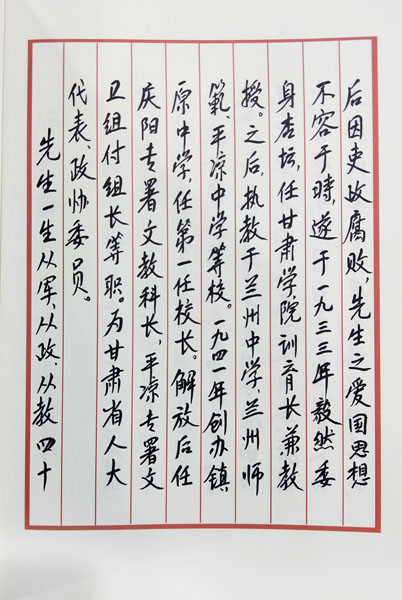 后因吏政腐败,先生之爱国思想
不容于時,遂于一九三三年毅然委
身杏坛,任甘肃学院训育长兼教
授。之后,执教于兰州中学、兰州师
範、平凉中学等校。一九四一年创办镇
原中学,任第一任校长。解放后任
庆阳专署文教科长,平凉专署文
卫组付组长等职。为甘肃省人大
代表、政协委员。
先生一生从军、从政、从教四十